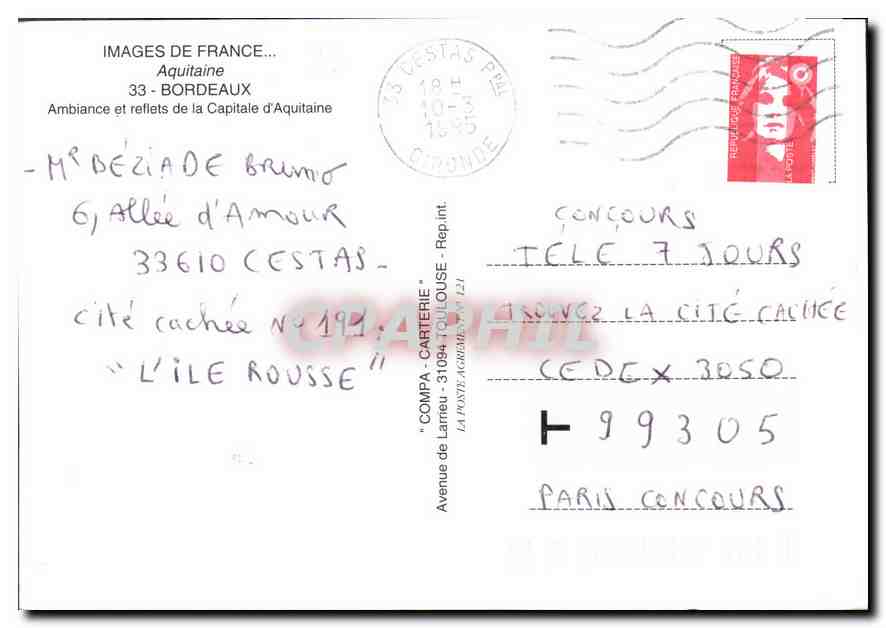 IMAGES DE FRANCE...
Aquitaine
33 - BORDEAUX
Ambiance et reflets de la Capitale d'Aquitaine
33 CESTAS Ppal
18 H
10-3
1995
GIRONDE
REPUBLIQUE FRANÇAISE
LA POSTE
- Mr BÉZIADE Bruno
6, Allée d'Amour
33610 CESTAS -
Cité cachée No 191.
"L'ÎLE ROUSSE"
" COMPA - CARTERIE "
Avenue de Larrieu - 31094 TOULOUSE - Rep.int.
LA POSTE AGREMENT N° 121
CONCOURS
TÉLÉ 7 JOURS
TROUVEZ LA CITÉ CACHÉE
CEDEX 3050
T 99305
PARIS CONCOURS
CPAPHIL